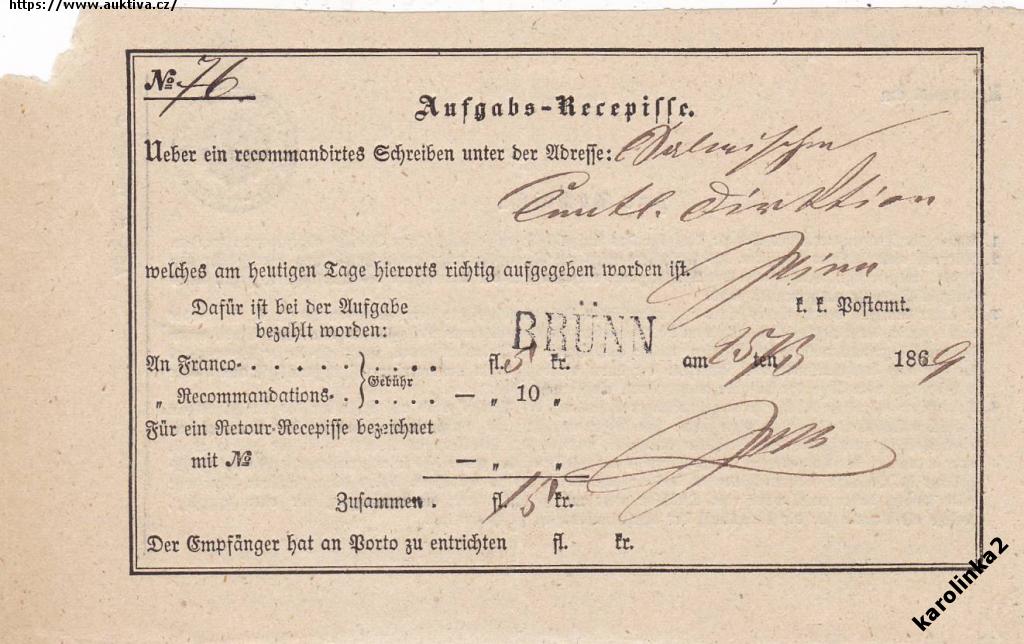 https://www.auktiva.cz/
№ 76.
Aufgabs-Recepisse.
Ueber ein recommandirtes Schreiben unter der Adresse:
Direktion
welches am heutigen Tage hierorts richtig aufgegeben worden ist. Wien
Dafür ist bei der Aufgabe k. k. Postamt.
bezahlt worden:
BRÜNN
An Franco- . . . . . . . . . fl. 5 kr. am 15/3 ten 1869
Gebühr
„ Recommandations- . . . . . — „ 10 „
Für ein Retour-Recepisse bezeichnet
mit № — „ „
Zusammen . fl. 15 kr.
Der Empfänger hat an Porto zu entrichten fl. kr.
karolinka2